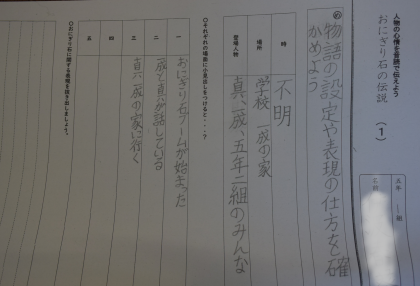 人物の心情を音読で伝えよう
おにぎり石の伝説
(1)
五年 一組
名前
め 物語の設定や表現の仕方を確
かめよう
時 不明
場所 学校 一成の家
登場人物 真、一成、五年二組のみんな
○それぞれの場面に小見出しをつけると・・・?
一 おにぎり石ブームが始まった
二 一成と真が話している
三 真が一成の家に行く
四
五
○おにぎり石に関する表現を抜き出しましょう。